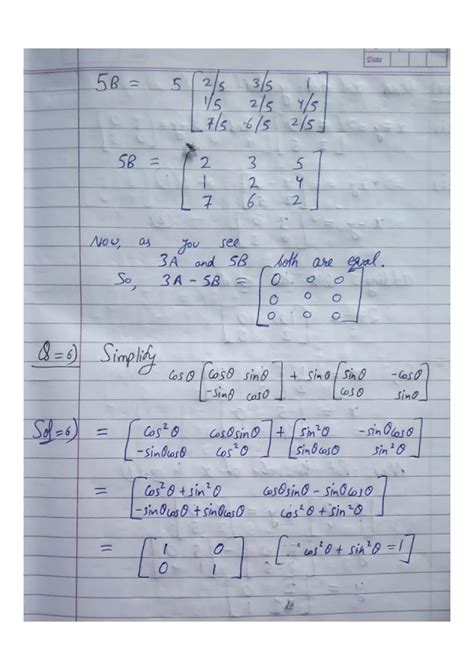 Date
5B = 5 [2/5 3/5 1
1/5 2/5 4/5
7/5 6/5 2/5]
5B = [2 3 5
1 2 4
7 6 2]
Now, as you see
3A and 5B both are equal.
So, 3A - 5B = [0 0 0
0 0 0
0 0 0]
Q=6) Simplify
cosθ [cosθ sinθ
-sinθ cosθ] + sinθ [sinθ -cosθ
cosθ sinθ]
Sol=6) = [cos²θ cosθsinθ
-sinθcosθ cos²θ] + [sin²θ -sinθcosθ
sinθcosθ sin²θ]
= [cos²θ + sin²θ cosθsinθ - sinθcosθ
-sinθcosθ + sinθcosθ cos²θ + sin²θ]
= [1 0
0 1] . [∵ cos²θ + sin²θ = 1]